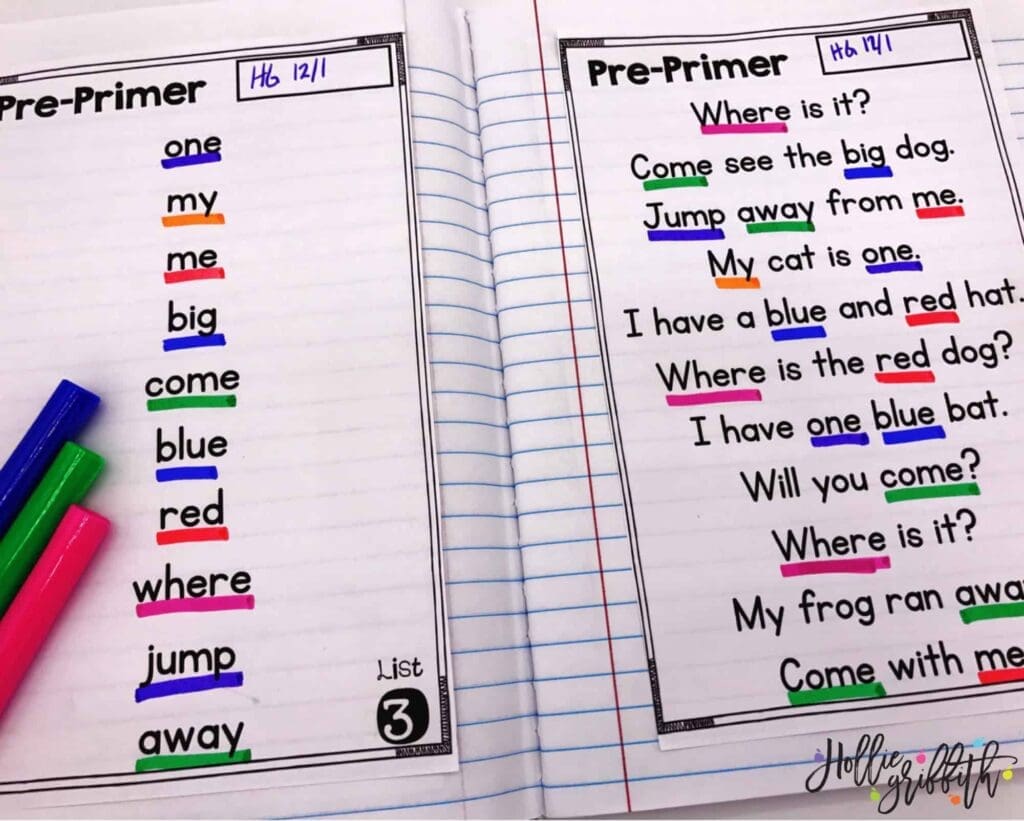 Pre-Primer
HG 12/1
one
my
me
big
come
blue
red
where
jump
away
List
3
Pre-Primer
HG 12/1
Where is it?
Come see the big dog.
Jump away from me.
My cat is one.
I have a blue and red hat.
Where is the red dog?
I have one blue bat.
Will you come?
Where is it?
My frog ran awa
Come with me
Hollie griffith